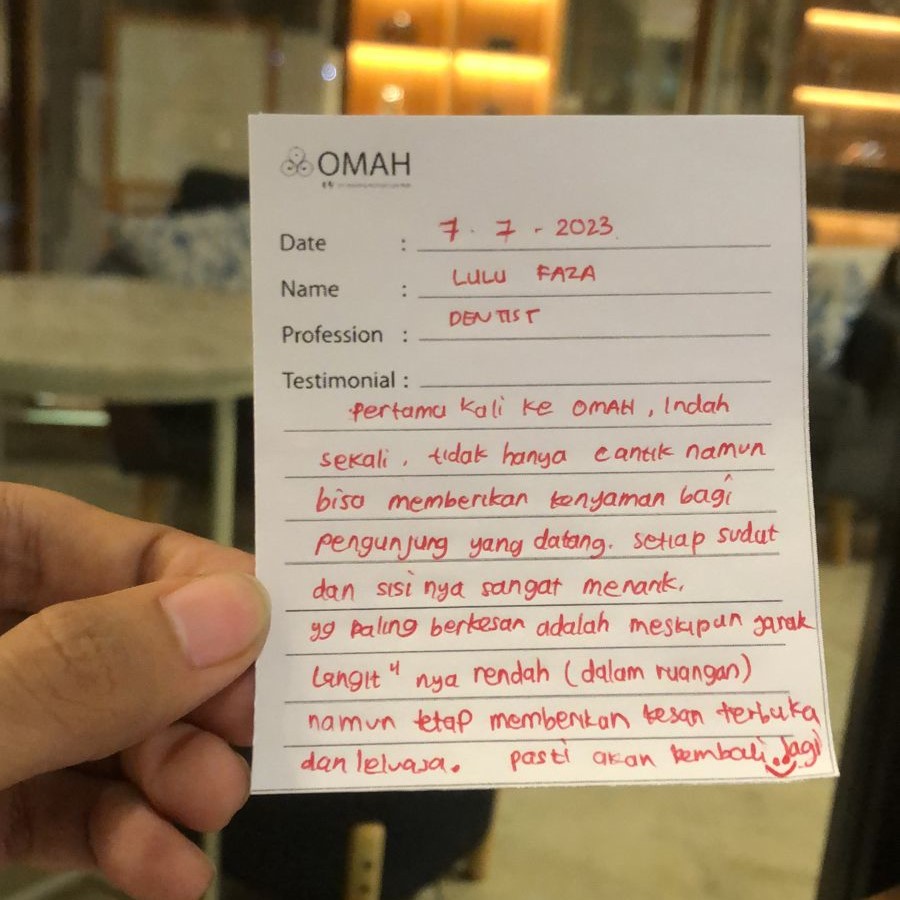 OMAH
Date : 7 - 7 - 2023
Name : LULU FAZA
Profession : DENTIST
Testimonial :
pertama kali ke OMAH, Indah
sekali, tidak hanya cantik namun
bisa memberikan kenyaman bagi
pengunjung yang datang. setiap sudut
dan sisi nya sangat menarik.
yg paling berkesan adalah meskipun jarak
langit" nya rendah (dalam ruangan)
namun tetap memberikan kesan terbuka
dan leluasa. pasti akan kembali lagi